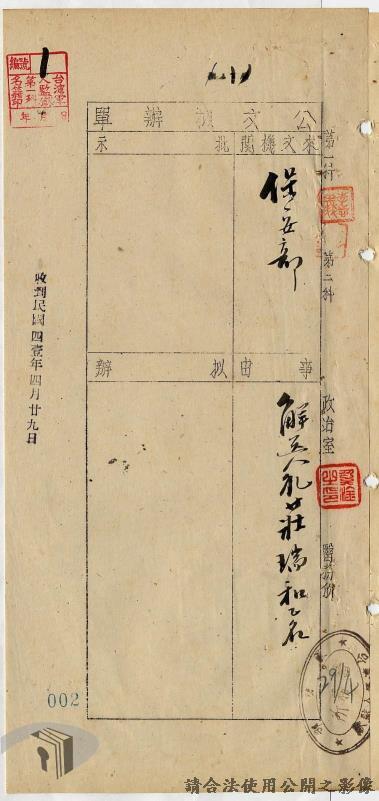 公文擬辦單
來文機關
批示
保安部
事由
擬辦
解送人犯莊瑞和乙名
第一科
第二科
政治室
收到民國四壹年四月廿九日
編號
1
29/4
002
請合法使用公開之影像